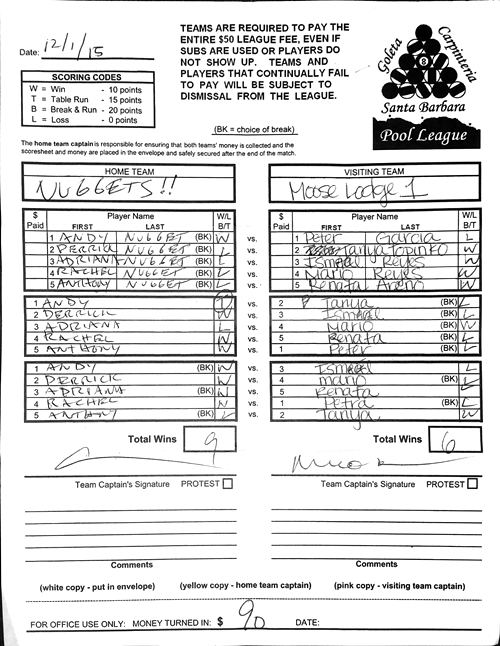 Date: 12/1/15
TEAMS ARE REQUIRED TO PAY THE
ENTIRE $50 LEAGUE FEE, EVEN IF
SUBS ARE USED OR PLAYERS DO
NOT SHOW UP. TEAMS AND
PLAYERS THAT CONTINUALLY FAIL
TO PAY WILL BE SUBJECT TO
DISMISSAL FROM THE LEAGUE.
(BK = choice of break)
SCORING CODES
W = Win - 10 points
T = Table Run - 15 points
B = Break & Run - 20 points
L = Loss - 0 points
Goleta Carpinteria
8
Santa Barbara
Pool League
The home team captain is responsible for ensuring that both teams' money is collected and the
scoresheet and money are placed in the envelope and safely secured after the end of the match.
HOME TEAM VISITING TEAM
NUGGETS!! Moose Lodge 1
$ Paid Player Name FIRST LAST W/L B/T $ Paid Player Name FIRST LAST W/L B/T
1 ANDY NUGGET (BK) W vs. 1 Peter Garcia L
2 DERRICK NUGGET (BK) L vs. 2 Tanya Topinko W
3 ADRIANA NUGGET (BK) L vs. 3 Ismael Reyes W
4 RACHEL NUGGET (BK) L vs. 4 Mario Reyes W
5 ANTHONY NUGGET (BK) L vs. 5 Renata W
1 ANDY vs. 2 Tanya (BK) L
2 DERRICK W vs. 3 Ismael (BK) L
3 ADRIANA L vs. 4 Mario (BK) W
4 RACHEL W vs. 5 Renata (BK) L
5 ANTHONY W vs. 1 Peter (BK) L
1 ANDY (BK) W vs. 3 Ismael L
2 DERRICK W vs. 4 mario (BK) L
3 ADRIANA (BK) W vs. 5 Renata L
4 RACHEL W vs. 1 Petra (BK) L
5 ANTHONY (BK) L vs. 2 Tanya W
Total Wins 9 Total Wins 6
Team Captain's Signature PROTEST Team Captain's Signature PROTEST
Comments Comments
(white copy - put in envelope) (yellow copy - home team captain) (pink copy - visiting team captain)
FOR OFFICE USE ONLY: MONEY TURNED IN: $ 90 DATE: